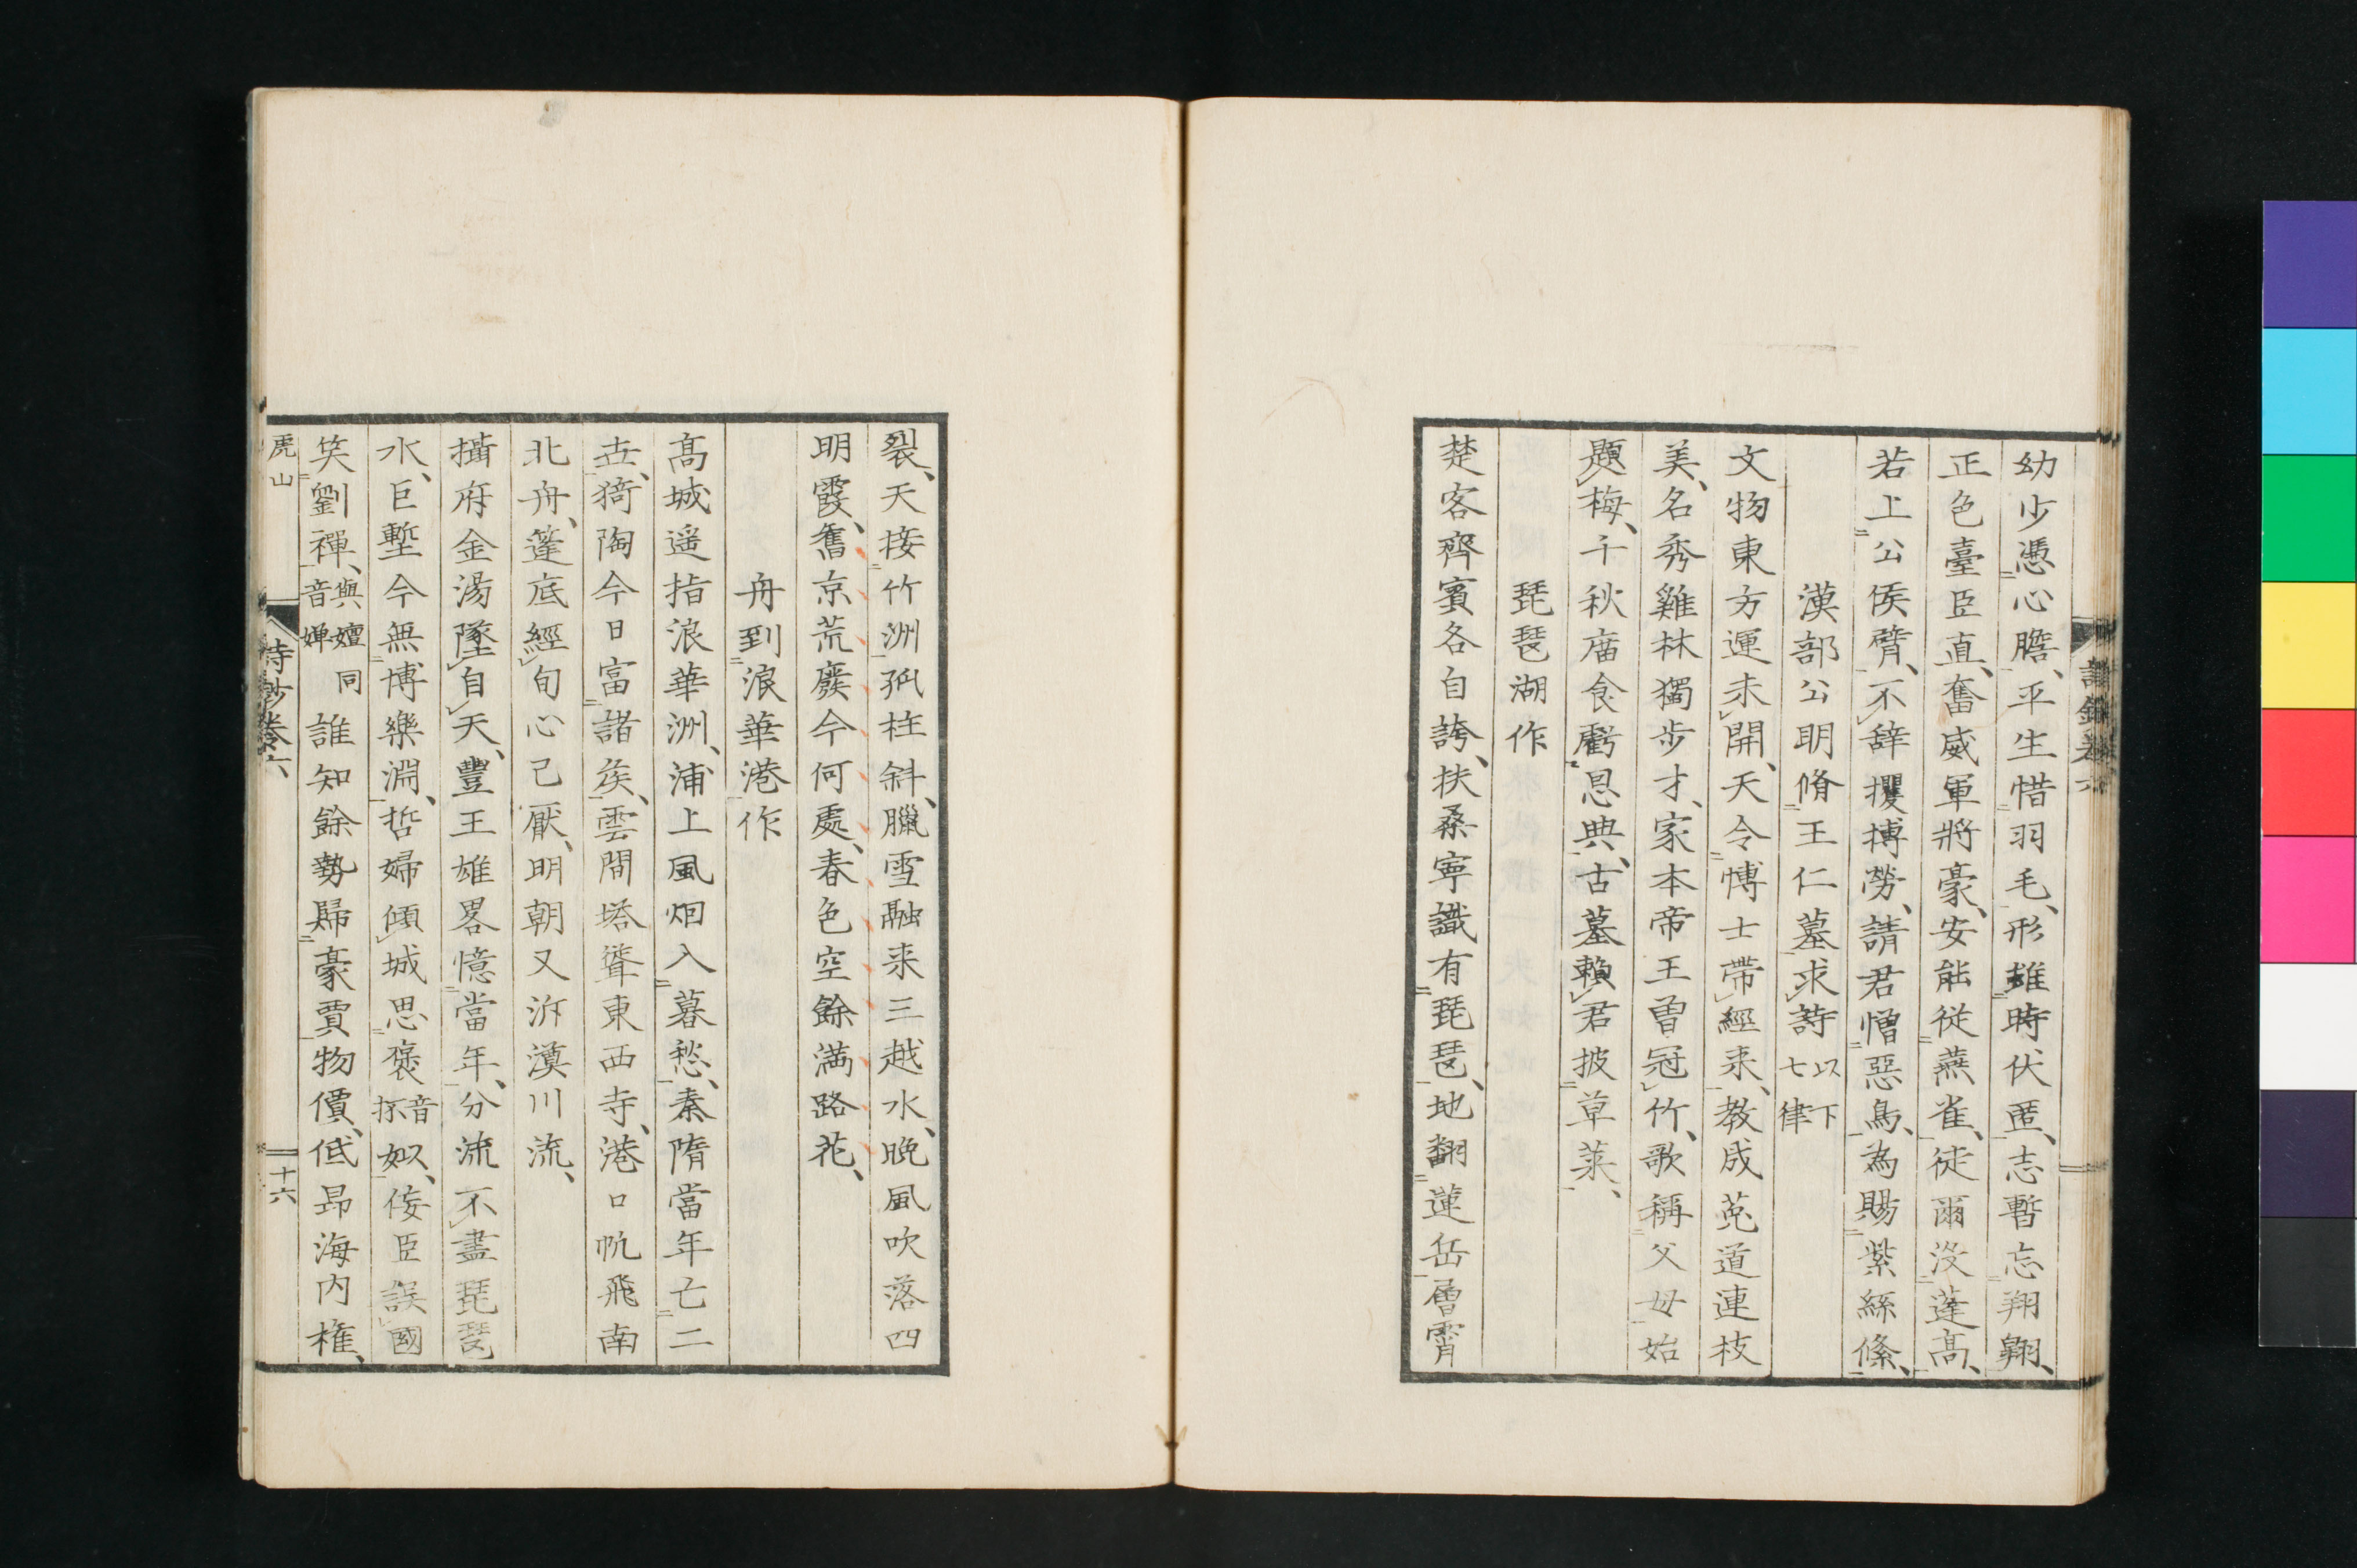 幼少憑心膽、平生惜羽毛、形雄時伏匿、志暫忘翔翺、
正色臺臣直、奮威軍將豪、安能從燕雀、徒爾没蓬高、
若上公侯臂、不辞攫搏勞、請君憎惡鳥、為賜紫絲絛、
漢部公明脩王仁墓求詩 以下七律
文物東方運未開、天令博士帶經来、教成菟道連枝
美、名秀雞林獨步才、家本帝王曽冠竹、歌稱父母始
題梅、千秋庿食虧恩典、古墓頼君披草萊、
琵琶湖作
楚客齊賓各自誇、扶桑寧識有琵琶、地翻蓮岳層霄
裂、天接竹洲孤柱斜、臘雪融来三越水、晩風吹落四
明霞、舊京荒廢今何處、春色空餘満路花、
舟到浪華港作
髙城遥指浪華洲、浦上風烟入暮愁、秦隋當年亡二
世、猗陶今日富諸矦、雲間塔聳東西寺、港口帆飛南
北舟、篷底經旬心已厭、明朝又泝漢川流、
攝府金湯墜自天、豐王雄畧憶當年、分流不盡琵琶
水、巨塹今無博樂淵、哲婦傾城思褒 音㧞 姒、佞臣誤國
笑劉禪、與嬗同音婵 誰知餘勢歸豪賈、物價低昂海内権、
虎山
詩鈔卷六
十六